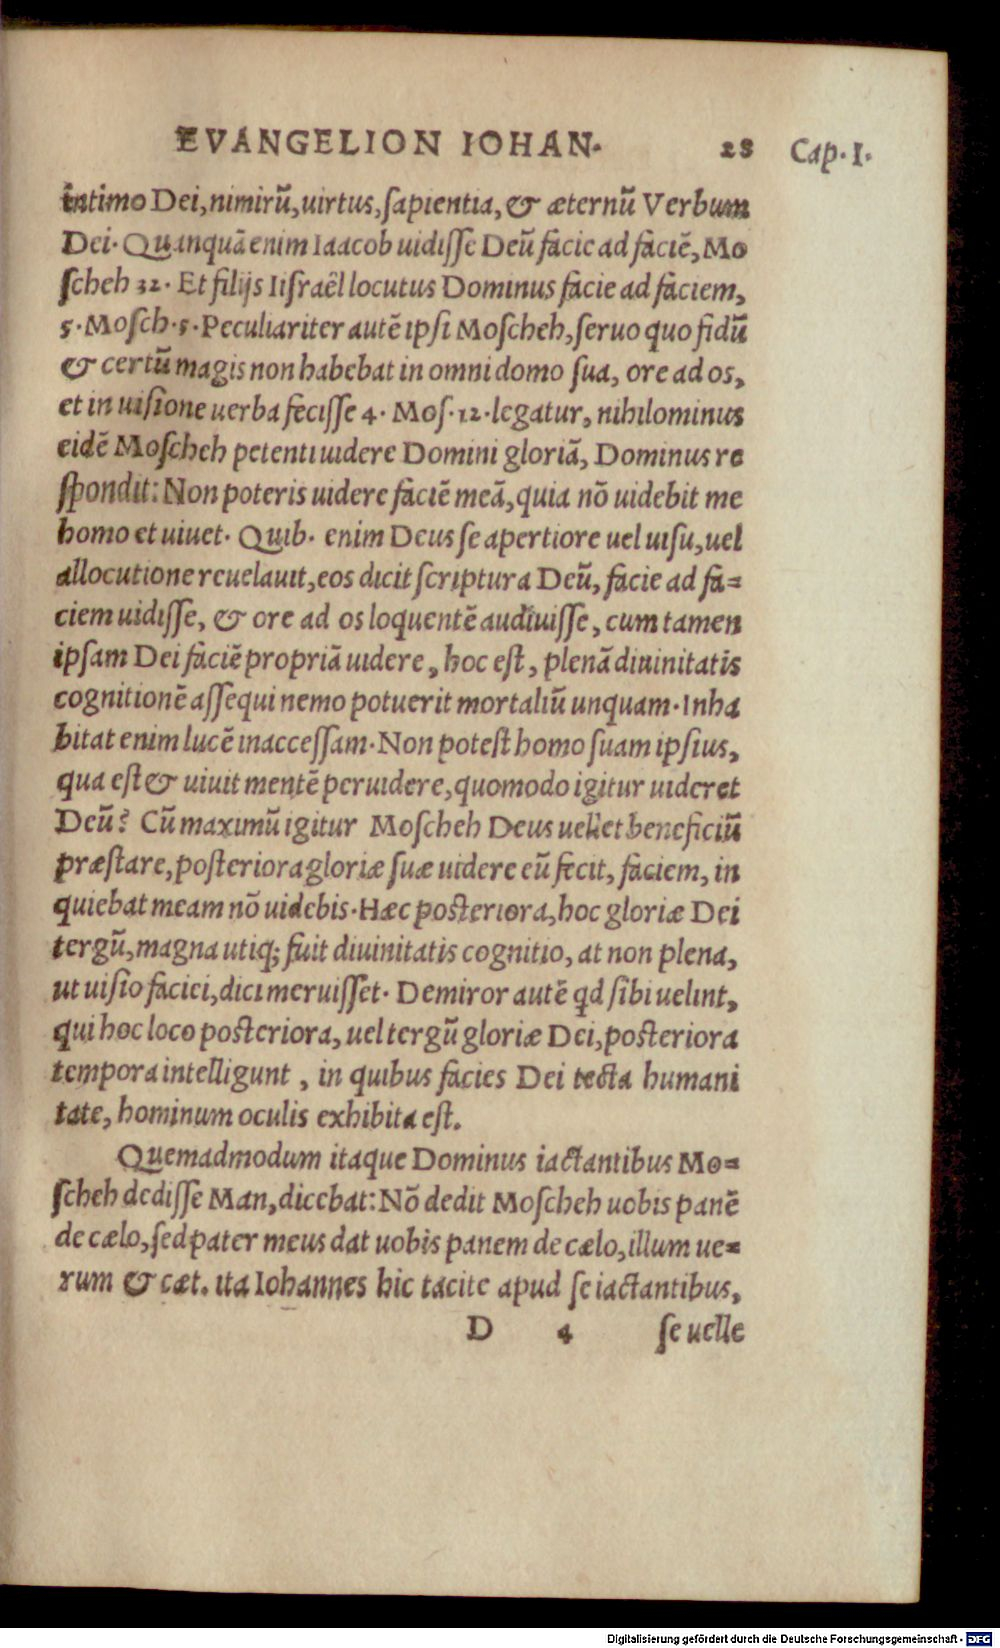 EVANGELION IOHAN. 28 Cap. I.
intimo Dei, nimirũ, uirtus, ſapientia, & æternũ Verbum
Dei. Quanquã enim Iaacob uidiſſe Deũ facie ad faciẽ, Mo
ſcheh 32. Et filijs Iiſraêl locutus Dominus facie ad faciem,
5. Moſch. 5. Peculiariter autẽ ipſi Moſcheh, ſeruo quo fidũ
& certũ magis non habebat in omni domo ſua, ore ad os,
et in uiſione uerba feciſſe 4. Moſ. 12. legatur, nihilominus
eidẽ Moſcheh petenti uidere Domini gloriã, Dominus re
ſpondit: Non poteris uidere faciẽ meã, quia nõ uidebit me
homo et uiuet. Quib. enim Deus ſe apertiore uel uiſu, uel
allocutione reuelauit, eos dicit ſcriptura Deũ, facie ad fa=
ciem uidiſſe, & ore ad os loquentẽ audiuiſſe, cum tamen
ipſam Dei faciẽ propriã uidere, hoc eſt, plenã diuinitatis
cognitionẽ aſſequi nemo potuerit mortaliũ unquam. Inha
bitat enim lucẽ inacceſſam. Non poteſt homo ſuam ipſius,
qua eſt & uiuit mentẽ peruidere, quomodo igitur uideret
Deũ? Cũ maximũ igitur Moſcheh Deus uellet beneficiũ
præſtare, poſteriora gloriæ ſuæ uidere eũ fecit, faciem, in
quiebat meam nõ uidebis. Hæc poſteriora, hoc gloriæ Dei
tergũ, magna utiq; fuit diuinitatis cognitio, at non plena,
ut uiſio faciei, dici meruiſſet. Demiror autẽ qd ſibi uelint,
qui hoc loco poſteriora, uel tergũ gloriæ Dei, poſteriora
tempora intelligunt, in quibus facies Dei tecta humani
tate, hominum oculis exhibita eſt.
Quemadmodum itaque Dominus iactantibus Mo=
ſcheh dediſſe Man, dicebat: Nõ dedit Moſcheh uobis panẽ
de cælo, ſed pater meus dat uobis panem de cælo, illum ue=
rum & cæt. ita Iohannes hic tacite apud ſe iactantibus,
D 4 ſe uelle
Digitalisierung gefördert durch die Deutsche Forschungsgemeinschaft - DFG